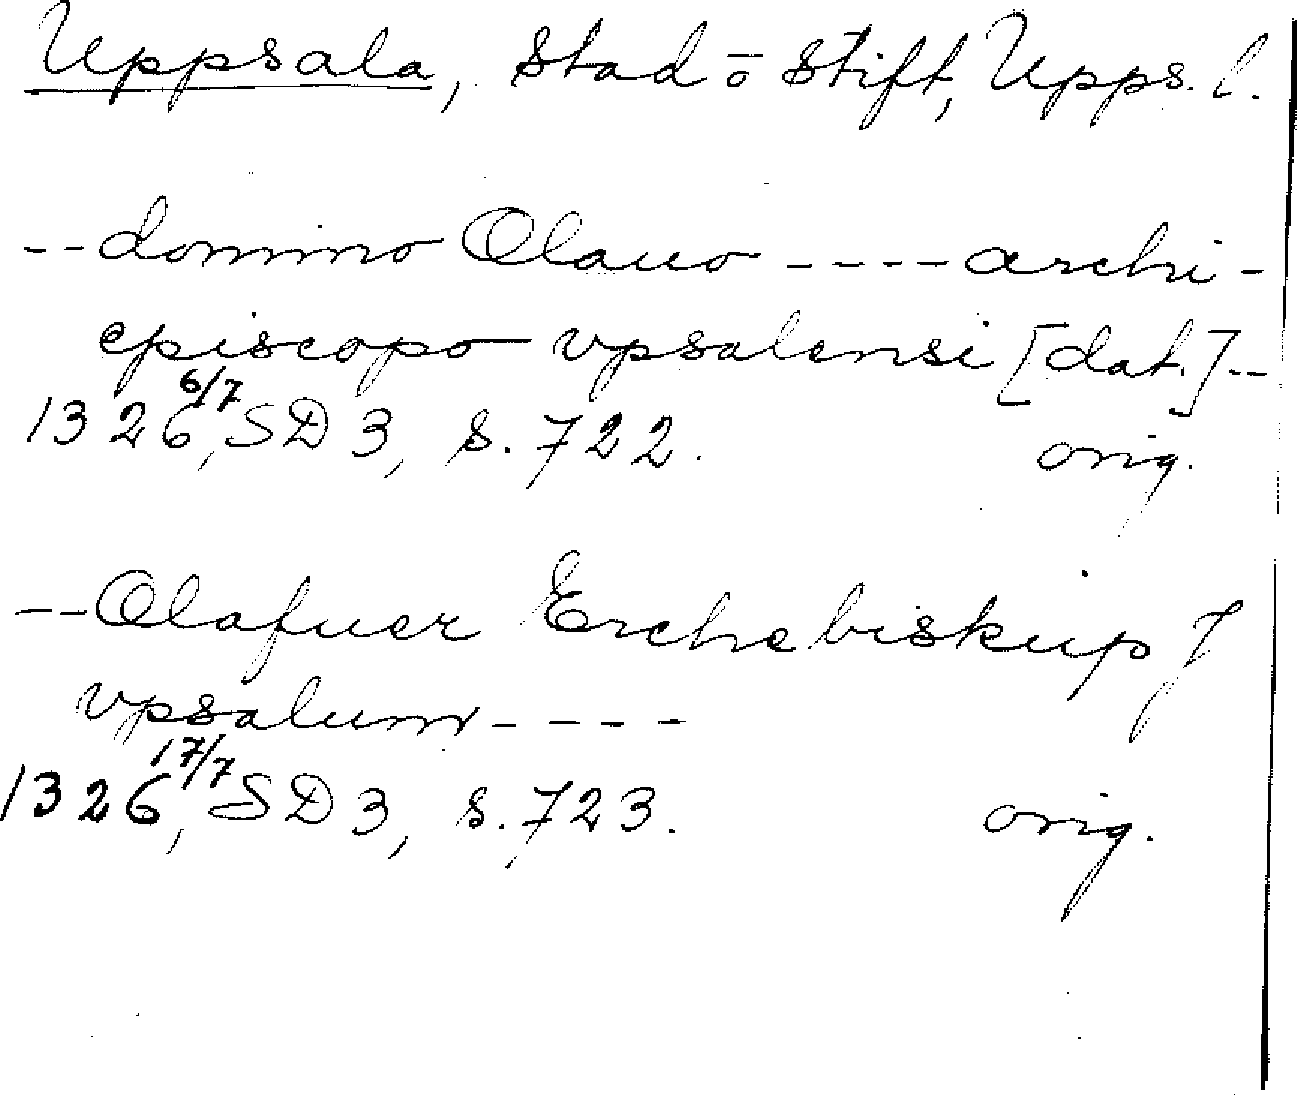 Uppsala, Stad o Stift, Upps. l.
-- domino Olauo ---- archi-
episcopo vpsalensi [dat.] --
1326 6/7, SD 3, s. 722. orig.
-- Olafuer Erchebiskup J
vpsalum ----
1326 17/7, SD 3, s. 723. orig.